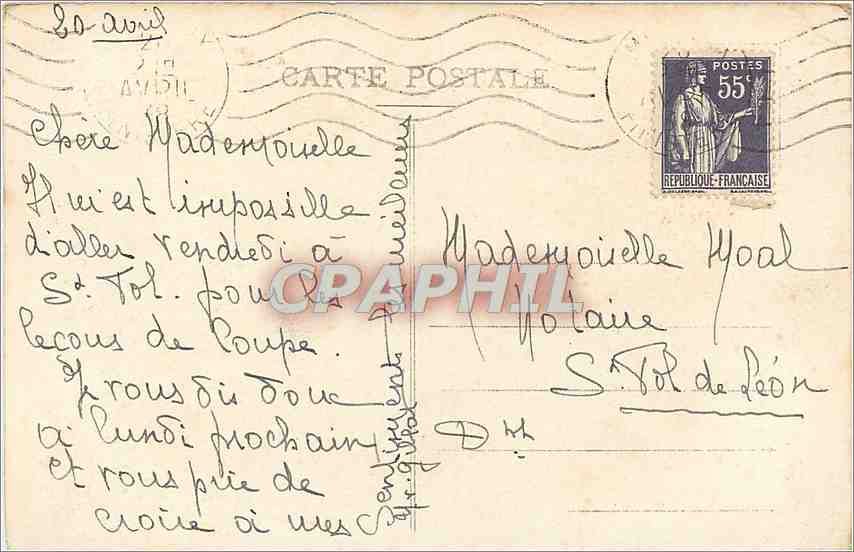 20 avril
AVRIL
CARTE POSTALE
POSTES
55c
REPUBLIQUE-FRANÇAISE
Chère Mademoiselle
Il m'est impossible
d'aller vendredi à
St. Pol. pour les
leçons de Coupe.
Je vous dis donc
à lundi prochain
et vous prie de
croire à mes
Sentiments les meilleurs
Mademoiselle Moal
Notaire
St. Pol de Léon
CPARPHIL